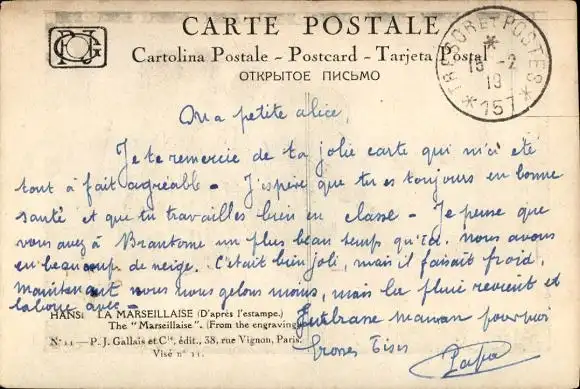 CARTE POSTALE
Cartolina Postale - Postcard - Tarjeta Postal
ОТКРЫТОЕ ПИСЬМО
TRESOR ET POSTES
* 15 -2 19
* 157 *
Ma petite Alice,
Je te remercie de ta jolie carte qui m'a été
tout à fait agréable - J'espère que tu es toujours en bonne
santé et que tu travailles bien en classe - Je pense que
vous avez à Brantome un plus beau temps qu'ici. nous avons
eu beaucoup de neige. C'était bien joli, mais il faisait froid,
maintenant nous nous gelons moins, mais la pluie revient et
la boue avec -
Embrasse maman pour moi
Grosses bises
Papa
HANSI LA MARSEILLAISE (D'après l'estampe.)
The "Marseillaise". (From the engraving
N° 11 - P. J. Gallais et Cie, édit., 38, rue Vignon, Paris.
Visé n° 11.